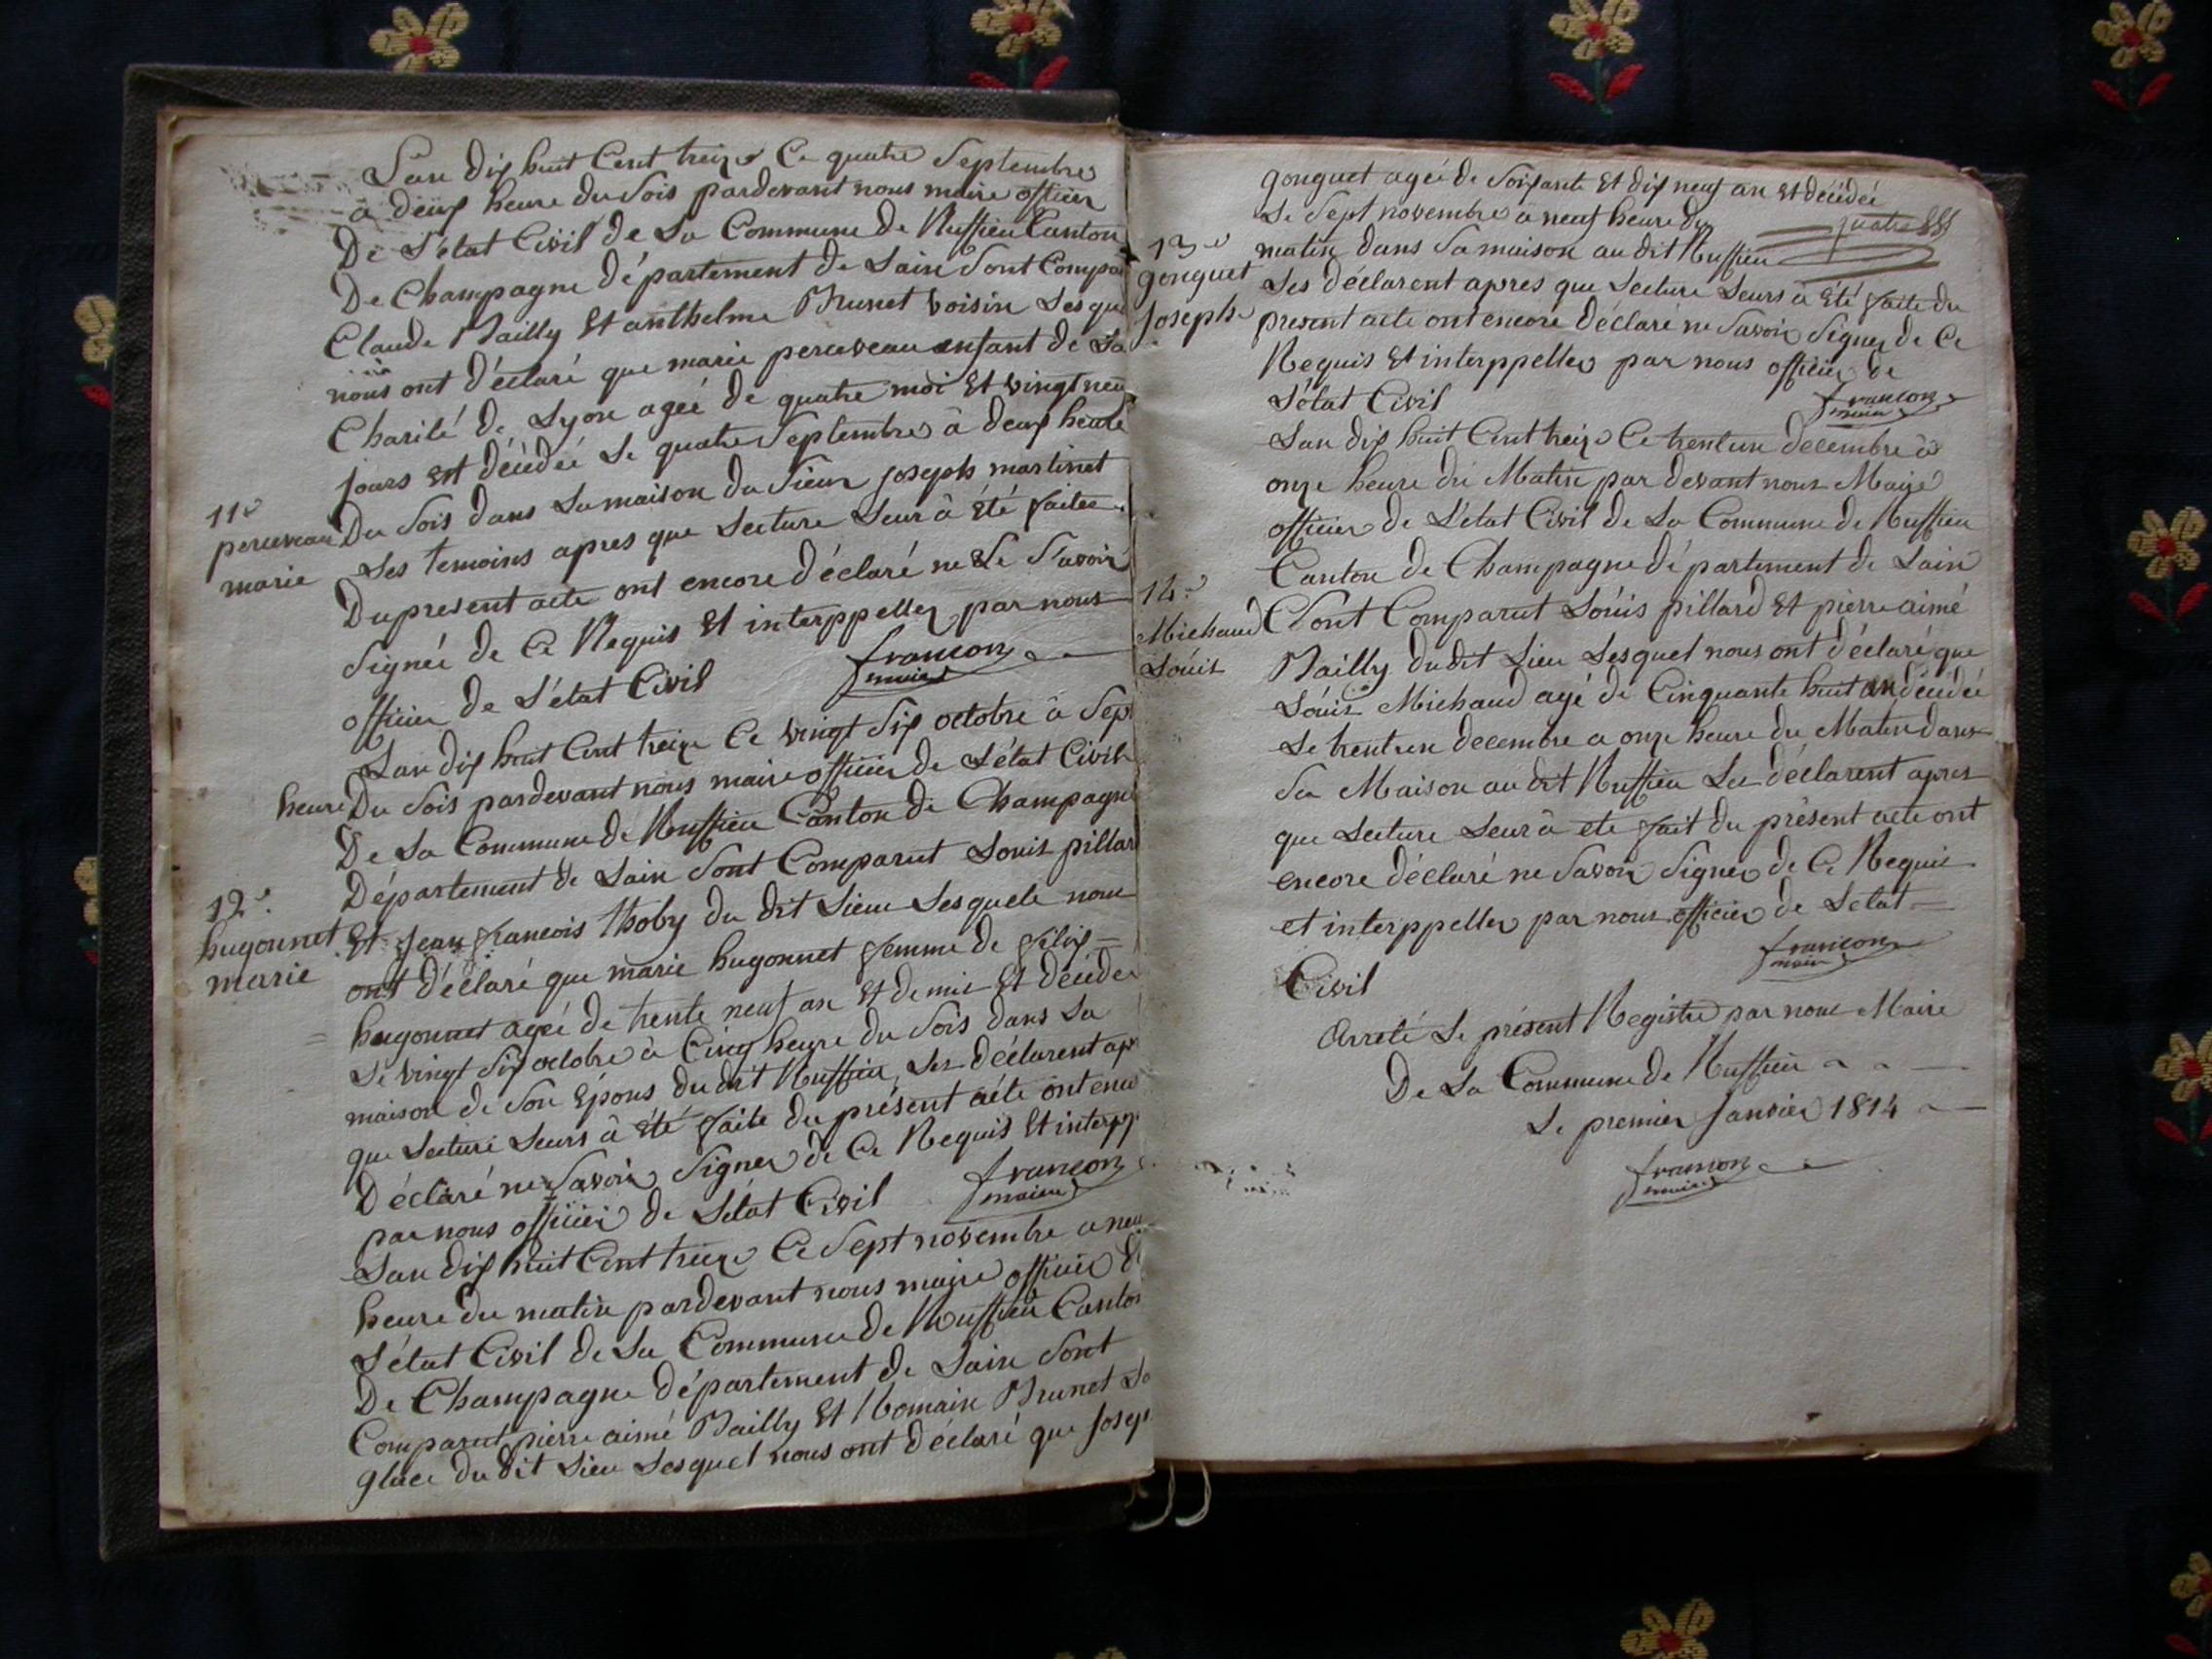 L'an dix huit Cent treize Ce quatre Septembre
a deux heure du Soir pardevant nous maire officier
De L'état Civil de La Commune de Ruffieu Canton
De Champagne département de Lain Sont Compar
Claude Bailly Et anthelme Brunet voisin Lesque
nous ont déclaré que marie perceveau enfant de La
Charité de Lyon ageé de quatre moi Et vingt neu
jours Est décédée Le quatre Septembre à deux heure
11e
perceveau
marie
Du Soir dans La maison du Sieur joseph martinet
Les temoins apres que Lecture Leur à été faitee
Du present acte ont encore déclaré ne Le Savoir
Signée de Ce Requis Et interppeller par nous
officier de L'état Civil
françon
maire
Lan dix huit Cent treize Ce vingt Six octobre à Sept
heure Du Soir pardevant nous maire officier de L'état Civil
De La Commune de Ruffieu Canton de Champagne
Département de Lain Sont Comparut Louis pillar
12e
hugonnet
marie
Et jean francois thoby du dit Lieu Lesquele nous
ont déclaré que marie hugonnet femme de félix =
= hugonnet ageé de trente neuf an Et demie Et décéder
Le vingt Six octobre à Cinq heure du Soir dans La
maison de Son Epous du dit Ruffieu Les déclarent apr
que Lecture Leurs à été faite du présent acte ont enco
Déclaré ne Savoir Signer de Ce Requis Et interpp
par nous officier de L'état Civil
françon
maire
Lan dix huit Cent treize Ce Sept novembre a neu
heure du matin pardevant nous maire officier
L'état Civil de La Commune de Ruffieu Canton
De Champagne département de Lain Sont
Comparut pierre aimé Bailly Et Romain Brunet
glace du dit Lieu Lesquel nous ont déclaré que joseph
13e
gonguet
joseph
gonguet ageé de Soixante Et dix neuf an Et décédée
Le Sept novembre à neuf heure du
matin dans Sa maison au dit Ruffieu
Les déclarent apres que Lecture Leurs à été faite du
present acte ont encore déclaré ne Savoir Signer de Ce
Requis Et interppeller par nous officier de
L'état Civil
françon
maire
Lan dix huit Cent treize Ce trentun decembre à
onze heure du Matin par devant nous Maire
officier de L'etat Civil de La Commune de Ruffieu
Canton de Champagne département de Lain
14e
Michaud
Louis
Sont Comparut Louis pillard Et pierre aimé
Bailly du dit Lieu Lesquel nous ont déclaré que
Louis Michaud agé de Cinquante huit an décédée
Le trentun decembre a onze heure du Matin dans
Sa Maison au dit Ruffieu Les déclarent apres
que Lecture Leur à ete fait du présent acte ont
encore déclaré ne Savoir Signer de Ce Requis
et interppeller par nous officier de Letat =
Civil
françon
maire
Arreté Le présent Registre par nous Maire
De La Commune de Ruffieu
Le premier janvier 1814
françon
maire